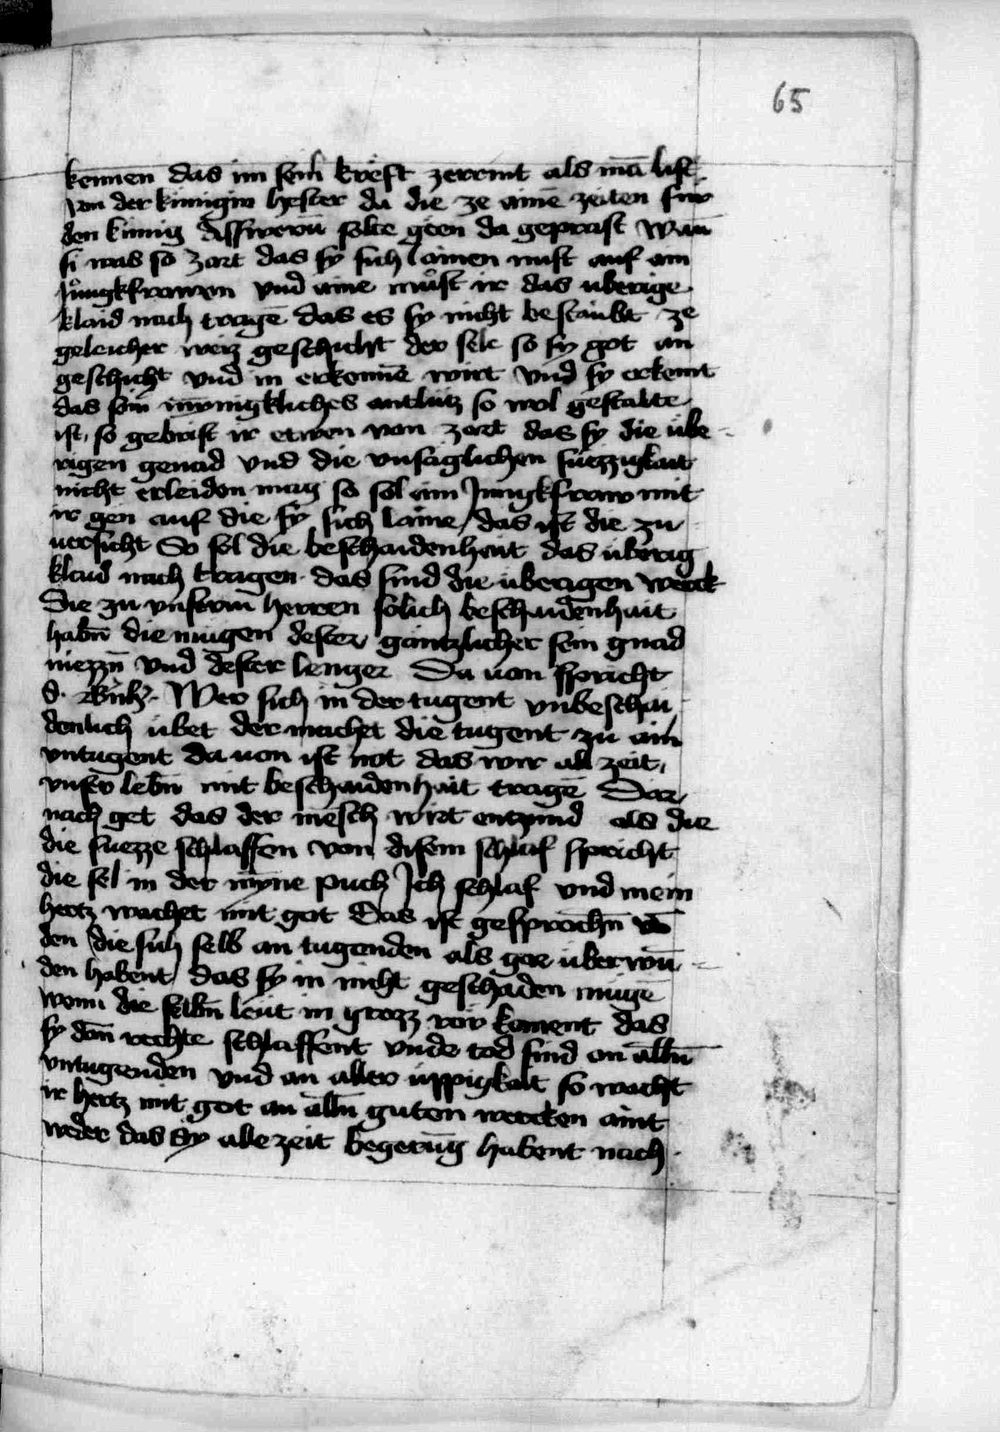 65
kennen das im sein kreft zerrint als mā list
von der künigin hester da die ze ainē zeiten für
den künig Assweru solte geen da geprast wan
si was so zart das sy sich lainen must auf ain
Jungkfrawen vnd aine muͦst ir das uberige
klaid nach tragē das es sy nicht bestaubt ze
geleicher weiz geschicht der sele so sy got an
geschicht vnd in erkennē wirt vnd sy erkennt
das sein mynigkliches antlütz so wol gestalte
ist, so gebrist ir etwen von zart das sy die übe
rigen genad vnd die vnsäglichen süezzigkait
nicht erleiden mag so sol ain Jungkfraw mit
ir gen auf die sy sich laine, das ist die zu
uersicht So sol die beschaidenhait das übrig
klaid nach tragen. das sind die überigen werck
Die zu vnserm herren solich beschaidenhait
habn̄ die mügen dester gantzlicher sein gnad
niezzn̄ vnd dester lenger Da uon spricht
S. Wer sich in der tugent vnbeschai
denlich übet der machet die tugent zu ain
vntugent da uon ist not das wir all zeit
vnser lebn̄ mit beschaidenhait tragē Dar
nach get das der mēsch wirt entzünd als die
die suezze schlaffen von disem schlaf spricht
die sel in der mȳne puch Ich schlaf vnd mein
hertz wachet mit got Das ist gesprochn̄ vō
den die sich selb an tugenden als gar überwū
den habent das sy in nicht geschaden mügē
wenn die selbn̄ leüt in grozz rw koment das
sy dan̄ rechte schlaffent vnde tod sind an alln̄
vntugenden vnd an aller üppigkait so wacht
ir hertz mit got an alln̄ guten wercken aint
weder das Sy alle zeit begerūg habent nach